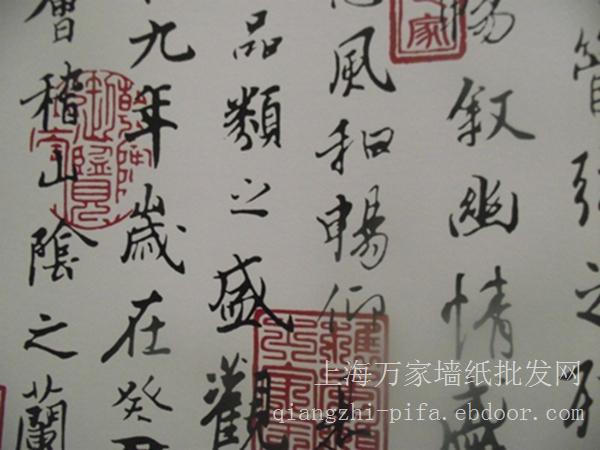 管弦之
暢叙幽情
風和暢仰
品類之盛觀
九年歲在癸
會稽山陰之蘭
上海万家墙纸批发网
qiangzhi-pifa.ebdoor.com